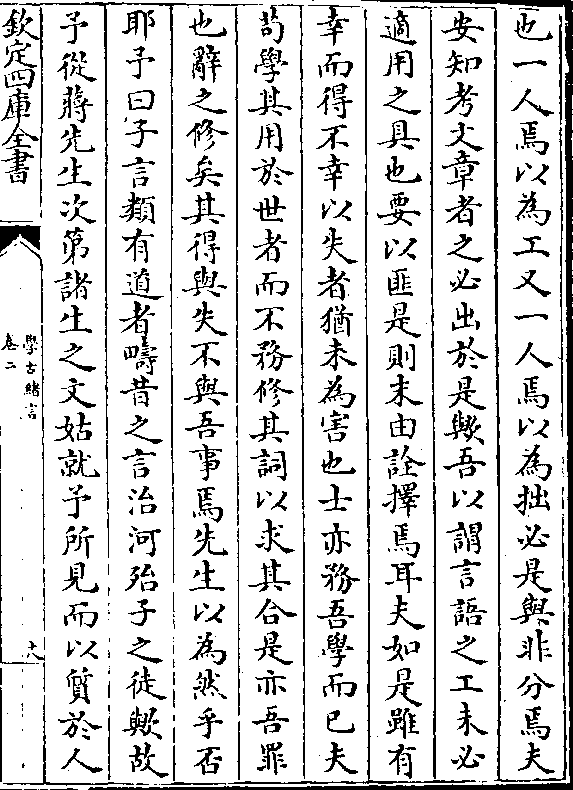 也一人焉以為工又一人焉以為拙必是與非分焉夫
安知考文章者之必出於是歟吾以謂言語之工未必
適用之具也要以匪是則末由詮擇焉耳夫如是雖有
幸而得不幸以失者猶未為害也士亦務吾學而已夫
苟學其用於世者而不務修其詞以求其合是亦吾罪
也辭之修矣其得與失不與吾事焉先生以為然乎否
耶予曰子言類有道者疇昔之言治河殆子之徒歟故
予從蔣先生次第諸生之文姑就予所見而以質於人
欽定四庫全書
學古緒言
卷二
十八